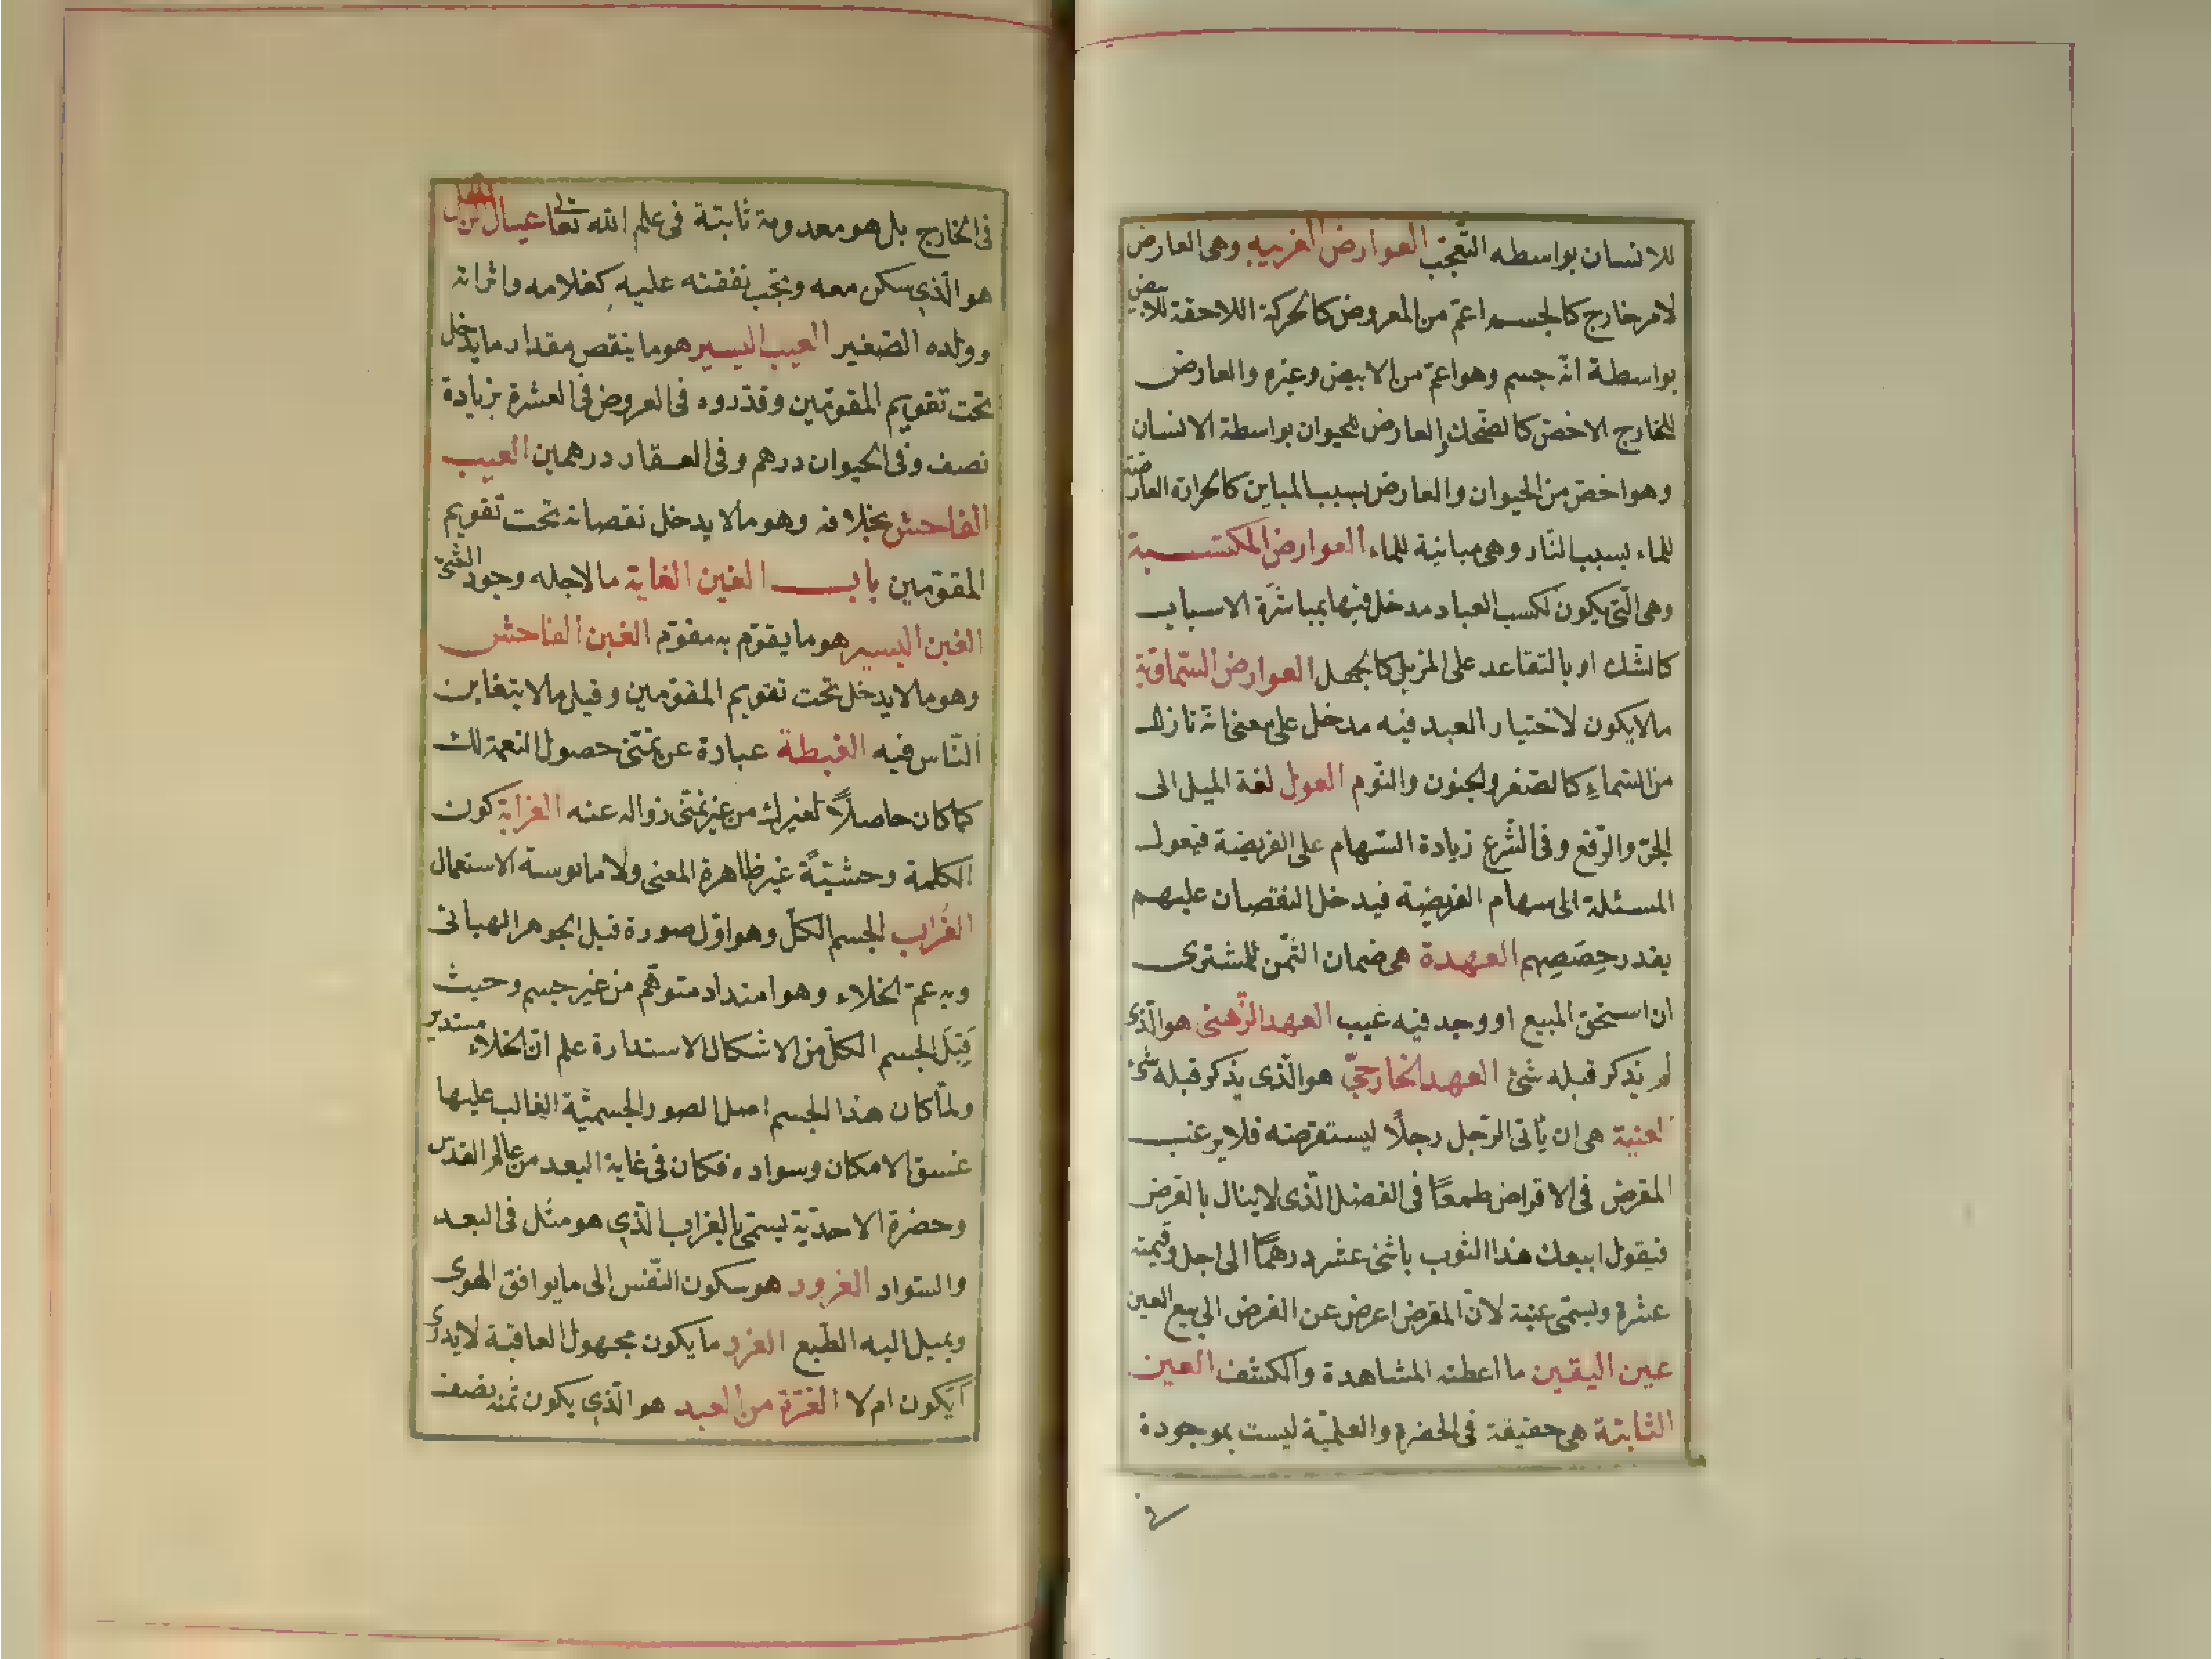 للانسان بواسطه التعجب العوارض الغريبه وهى العارض
لامر خارج كالجسم اعمّ من المعروض كالحركة اللاحقة للابيض
بواسطة انّه جسم وهو اعمّ من الابيض وغيره والعارض
للخارج الاخصّ كالضحك العارض للحيوان بواسطة الانسان
وهو اخصّ من الحيوان والعارض بسبب المباين كالحرارة العارضة
للماء بسبب النّار وهى مباينة للماء العوارض المكتسبة
وهى الّتى يكون لكسب العباد مدخل فيها بمباشرة الاسباب
كالسّكر او بالتقاعد على المزيل كالجهل العوارض السّماوّية
مالا يكون لاختيار العبد فيه مدخل على معنى انّه نازل
من السّماء كالصّغر والجنون والنّوم العول لغة الميل الى
الجرّ والرّفع وفى الشّرع زيادة السّهام على الفريضة فيعول
المسئلة الى سهام الفريضة فيدخل النقصان عليهم
بقدر حِصَصِهم العهدة هى ضمان الثّمن للمشترى
ان استحقّ المبيع او وجد فيه عيب العهد الذّهنى هو الّذى
لم يذكر قبله شئ العهد الخارجىّ هو الّذى يذكر قبله شئ
العنية هى ان يأتى الرّجل رجلاً ليستقرضه فلا يرغب
المقرض فى الاقراض طمعاً فى الفضل الّذى لا ينال بالقرض
فيقول ابيعك هذا الثوب باثنى عشر درهماً الى اجل وقيمته
عشرة ويسمّى عنية لانّ المقرض اعرض عن القرض الى بيع العين
عين اليقين ما اعطته المشاهدة والكشف العين
الثابتة هى حقيقة فى الحضرة والعلميّة ليست بموجودة
فى
فى الخارج بل هو معدومة ثابتة فى علم الله تعالى عيال الرجل
هو الّذى سكن معه وتجب نفقته عليه كغلامه وامراته
وولده الصّغير العيب اليسير هو ما ينقص مقدار ما يدخل
تحت تقويم المقوّمين وقدّروه فى العروض فى العشرة بزيادة
نصف وفى الحيوان درهم وفى العقار درهمين العيب
الفاحش بخلافه وهو مالا يدخل نقصانه تحت تقويم
المقوّمين باب الغين الغاية ما لاجله وجود الشئ
الغبن اليسير هو ما يقوّم به مقوّم الغبن الفاحش
وهو مالا يدخل تحت تقويم المقوّمين وقيل مالا يتغابن
النّاس فيه الغبطة عبارة عن تمنّى حصول النعمة لك
كما كان حاصلاً لغيرك من غير تمنّى زواله عنه الغرابة كون
الكلمة وحشيّةً غير ظاهرة المعنى ولا مانوسة الاستعمال
الغُراب الجسم الكلّ وهو اوّل صورة قبل الجوهر الهبائى
وبه عمّ الخلاء وهو امتداد متوهّم من غير جسم وحيث
قَبِلَ الجسم الكلّ من الاشكال الاستدارة علم انّ الخلاء مستدير
ولمّا كان هذا الجسم اصل الصور الجسميّة الغالب عليها
غسق الامكان وسواده فكان فى غاية البعد من عالم القدس
وحضرة الاحديّة يسمّى بالغراب الّذى هو مثل فى البعد
والسّواد الغرور هو سكون النّفس الى ما يوافق الهوى
ويميل اليه الطّبع الغرر ما يكون مجهول العاقبة لا يدرى
أيكون ام لا الغرّة من العبد هو الّذى يكون ثمنه نصف